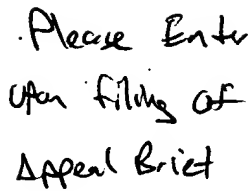 .Please Enter
upon filing of
Appeal Brief